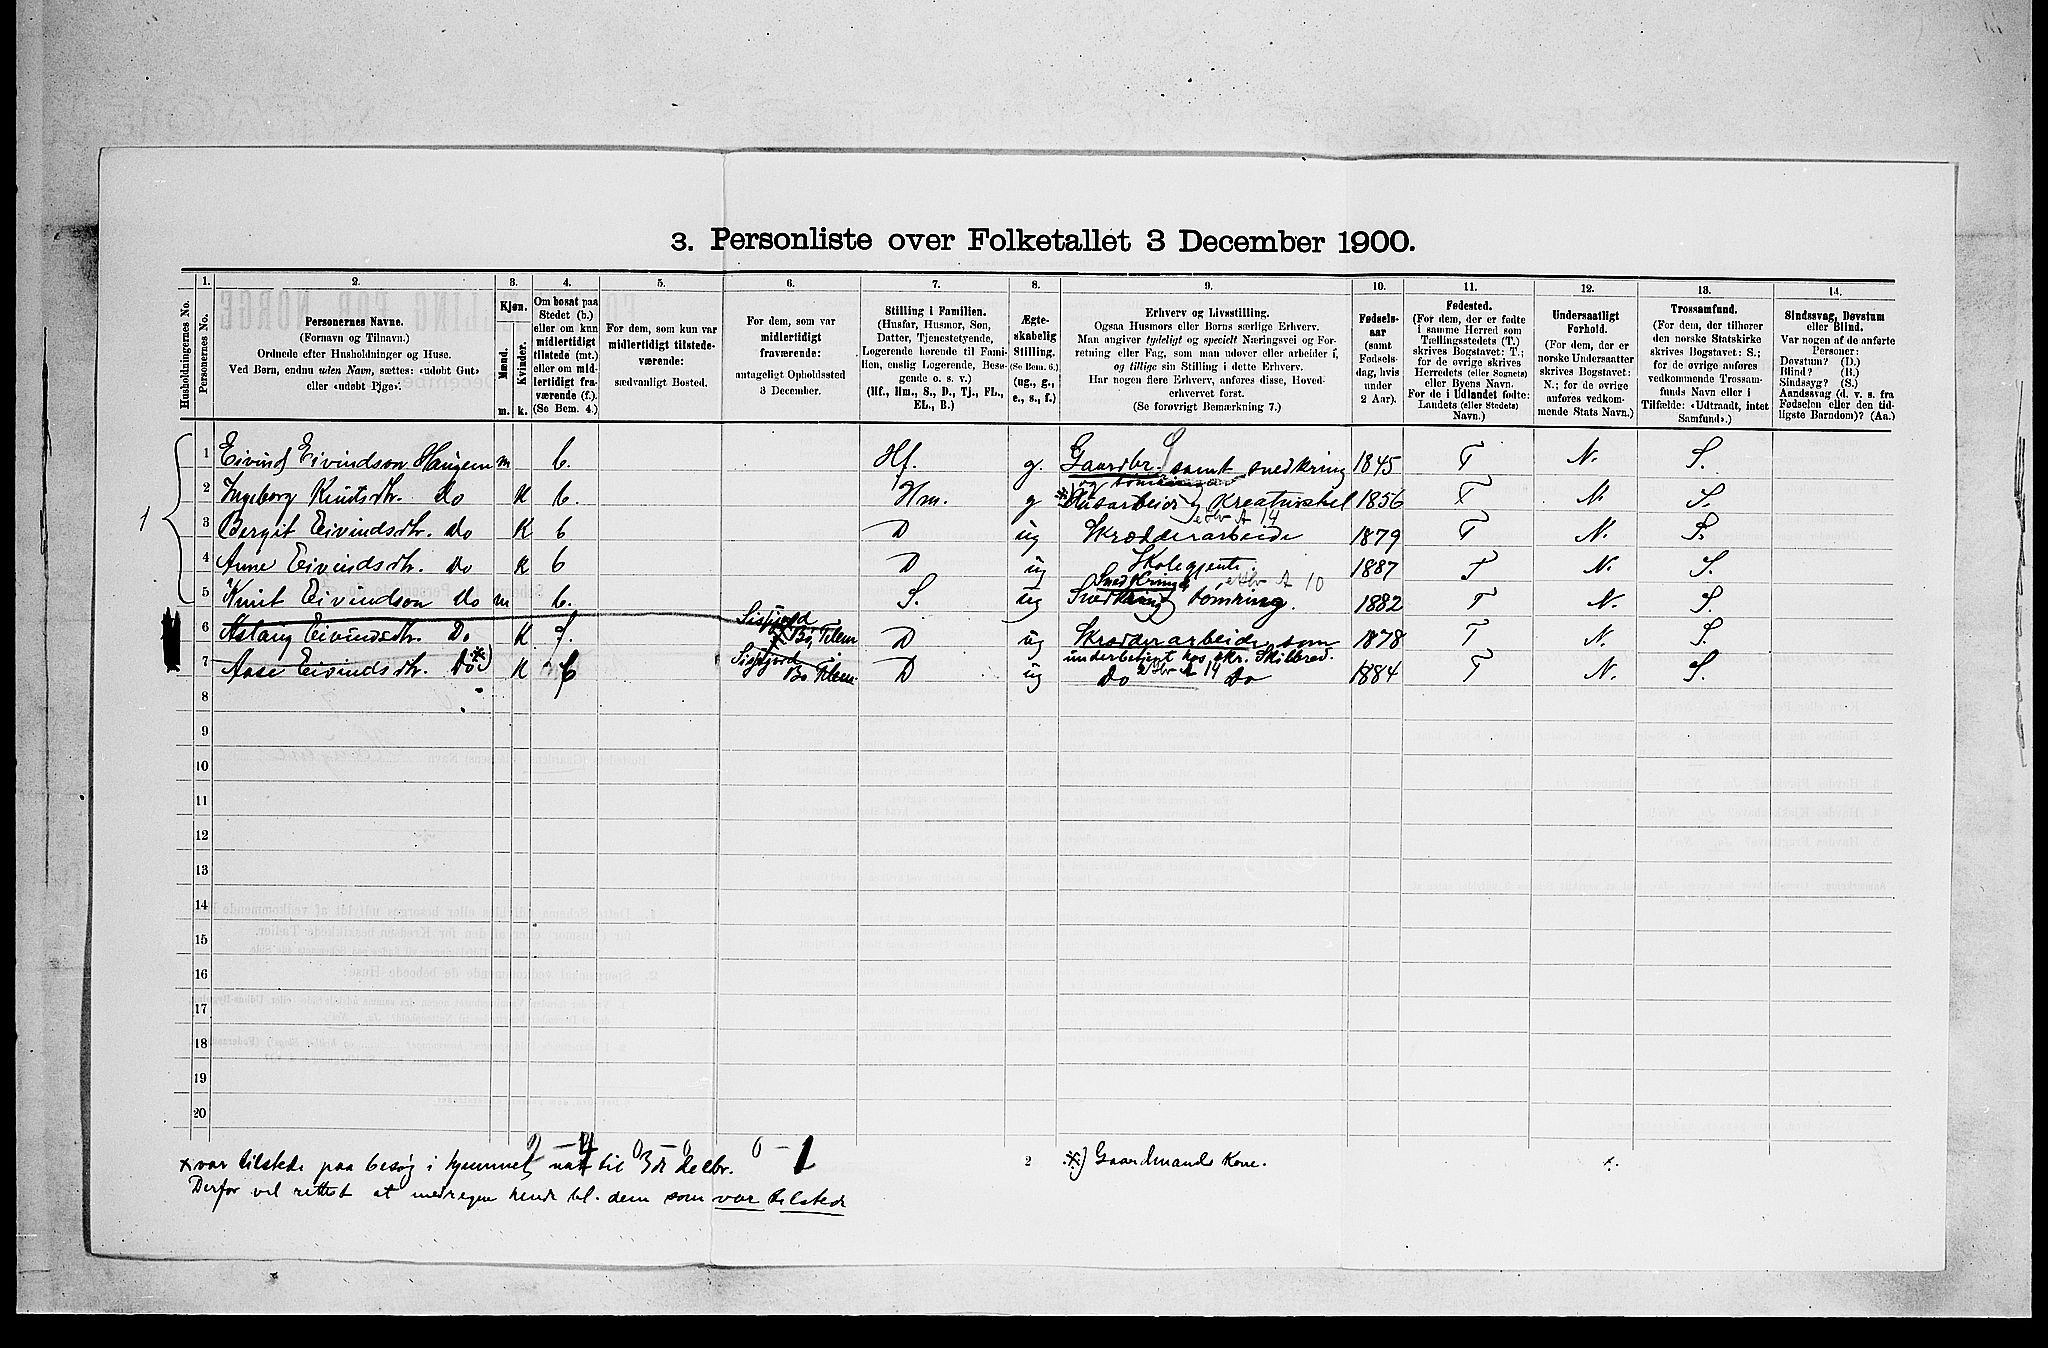 3. Personliste over Folketallet 3 December 1900.
Husholdningernes No.
1. Personernes No.
2. Personernes Navne. (Fornavn og Tilnavn.) Ordnede efter Husholdninger og Huse. Ved Børn, endnu uden Navn, sættes: «udøbt Gut» eller «udøbt Pige».
3. Kjøn. Mænd. m. Kvinder. k.
4. Om bosat paa Stedet (b.) eller om kun midlertidigt tilstede (mt.) eller om midlertidigt fraværende (f.). (Se Bem. 4.)
5. For dem, som kun var midlertidigt tilstedeværende: sædvanligt Bosted.
6. For dem, som var midlertidigt fraværende: antageligt Opholdssted 3 December.
7. Stilling i Familien. (Husfar, Husmor, Søn, Datter, Tjenestetyende, Logerende hørende til Familien, enslig Logerende, Besøgende o. s. v.) (Hf., Hm., S., D., Tj., FL., EL., B.)
8. Ægteskabelig Stilling. (Se Bem. 6.) (ug., g., e., s., f.)
9. Erhverv og Livsstilling. Ogsaa Husmors eller Børns særlige Erhverv. Man angiver tydeligt og specielt Næringsvei og Forretning eller Fag, som man udøver eller arbeider i, og tillige sin Stilling i dette Erhverv. Har nogen flere Erhverv, anføres disse, Hovederhvervet først. (Se forøvrigt Bemærkning 7.)
10. Fødselsaar (samt Fødselsdag, hvis under 2 Aar).
11. Fødested. (For dem, der er fødte i samme Herred som Tællingsstedets (T.) skrives Bogstavet: T.; for de øvrige skrives Herredets (eller Sognets) eller Byens Navn. For de i Udlandet fødte: Landets (eller Stedets) Navn.)
12. Undersaatligt Forhold. (For dem, der er norske Undersaatter skrives Bogstavet: N.; for de øvrige anføres vedkommende Stats Navn.)
13. Trossamfund. (For dem, der tilhører den norske Statskirke skrives Bogstavet: S.; for de øvrige anføres vedkommende Trossamfunds Navn eller i Tilfælde: «Udtraadt, intet Samfund».)
14. Sindssvag, Døvstum eller Blind. Var nogen af de anførte Personer: Døvstum? (D.) Blind? (B.) Sindssyg? (S.) Aandssvag (d. v. s. fra Fødselen eller den tidligste Barndom)? (Aa.)
1 1 Eivind Eivindson Haugen m b. Hf. g. Gaardbr. samt snedkring 1845 T N. S.
2 Ingeborg Knutsdtr. Do K b. Hm. g *) Husarbeide og Kreaturstel 1856 T N S.
3 Bergit Eivindsdtr. Do K b D ug Skrædderarbeide 1879 T N. S.
4 Anne Eivindsdtr. Do K b D ug Skolegjente. 1887 T N. S.
5 Knut Eivindson Do m b. S. ug Snedkring tømring. 1882 T N. S.
6 Aslaug Eivindsdtr. Do K f. Bø, Telem D ug Skrædderarbeide som underbetjent hos skr. Skilbred. 1878 T N. S.
7 Aase Eivindsdtr. Do *) K b Bø Telem D ug Do Do 1884 T N. S.
8
9
10
11
12
13
14
15
16
17
18
19
20
2 - 4 0 - 0 0 - 1
x var tilstede paa besøg i hjemmet nat til 3di decbr.
Derfor vel rettest at medregne hende bl. dem som var tilstede
2
*) Gaardmands Kone.